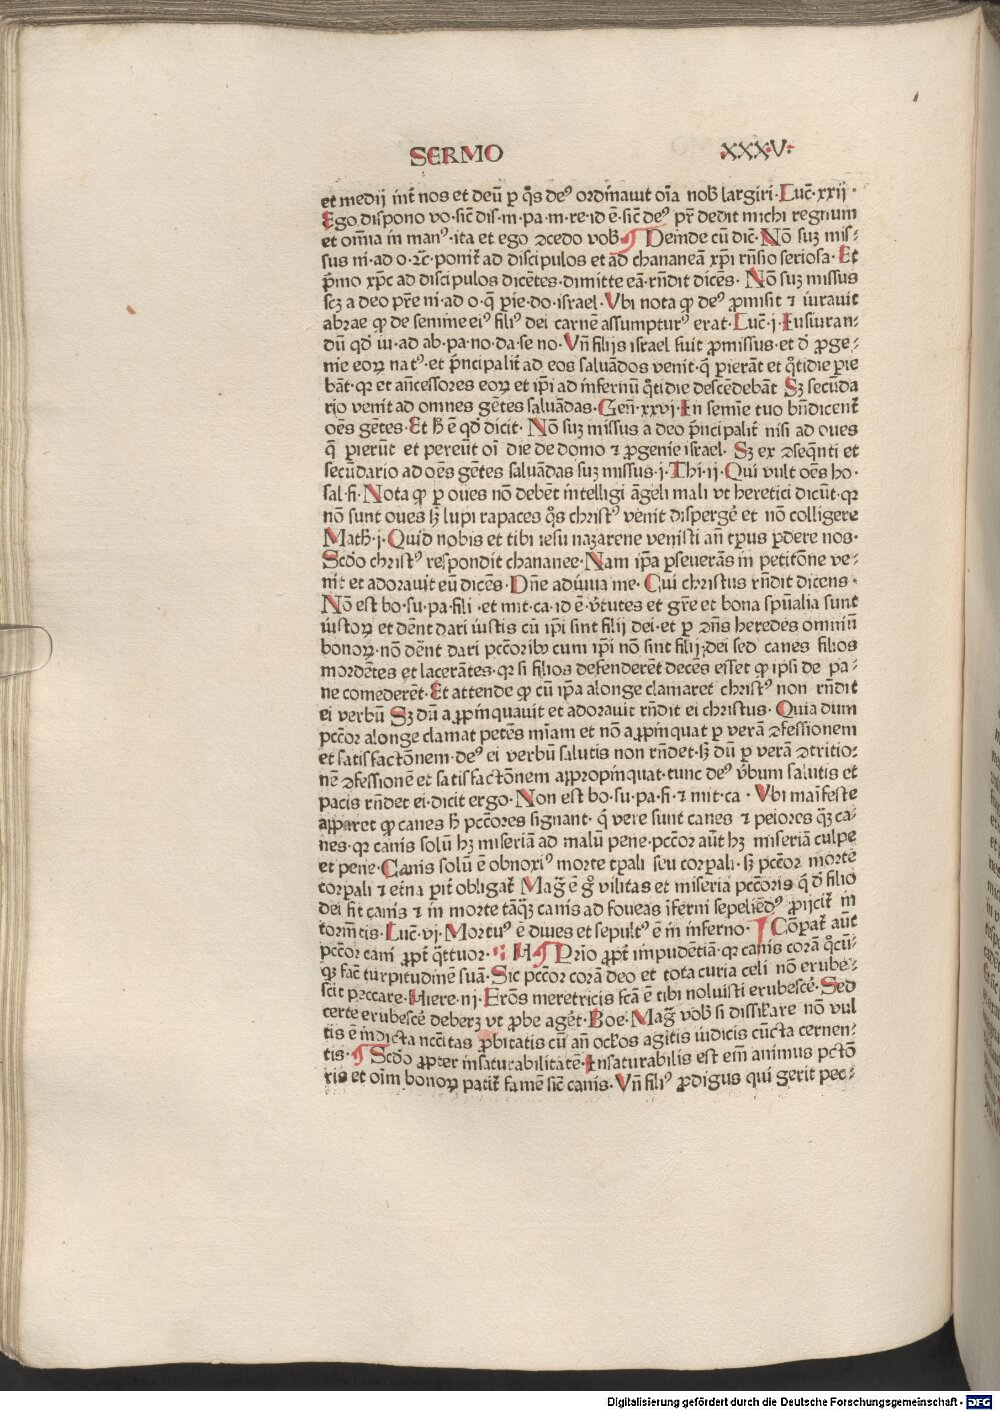 SERMO .XXXV.
et medij int̄ nos et deū ꝑ q̄s deꝰ ordinauit oīa nob̄ largiri. Luc̄. xxij.
Ego dispono vo. sic̄ dis. m. pa. m. re. id ē. sic̄ deꝰ pr̄ dedit michi regnum
et om̄ia in manꝰ. ita et ego ꝯcedo vob̄. ¶ Deinde cū dic̄. Nō suꝫ mis-
sus ni. ad o. ꝛc̄. ponit̄ ad discipulos et ad chananeā xp̄i rn̄sio seriosa. Et
p̄mo xp̄c ad discipulos dicētes. dimitte eā. rn̄dit dicēs. Nō suꝫ missus
scꝫ a deo pr̄e ni. ad o. q̄ ꝑie. do. israel. Vbi nota ꝙ deꝰ ꝓmisit ⁊ iurauit
abrae ꝙ de semine eiꝰ filiꝰ dei carnē assumpturꝰ erat. Luc̄. j. Iusiuran-
dū qd̄ iu. ad ab. pa. no. da. se no. Vn̄ filijs israel fuit ꝓmissus. et d̄ ꝓge-
nie eoꝝ natꝰ. et p̄ncipalit̄ ad eos saluādos venit. q̄ ꝑierāt et q̄tidie ꝑie
bāt. qꝛ et an̄cessores eoꝝ et ip̄i ad infernū q̄tidie descēdebāt Sꝫ secūda
rio venit ad omnes gētes saluādas. Gen̄. xxvj. In semīe tuo bn̄dicent̄
oēs gētes. Et h̄ ē qd̄ dicit. Nō suꝫ missus a deo p̄ncipalit̄ nisi ad oues
q̄ ꝑierūt et pereūt oī die de domo ⁊ ꝓgenie israel. Sꝫ ex ꝯseq̄nti et
secūdario ad oēs gētes saluādas suꝫ missus. j. Thi. ij. Qui vult oēs ho.
sal. fi. Nota ꝙ ꝑ oues nō debēt intelligi āgeli mali vt heretici dicūt. qꝛ
nō sunt oues sꝫ lupi rapaces q̄s christꝰ venit dispergē et nō colligere
Math̄. j. Quid nobis et tibi iesu nazarene venisti an̄ tp̄us ꝑdere nos.
Scd̄o christꝰ respondit chananee. Nam ip̄a ꝑseuerās in petitōne ve-
nit et adorauit eū dicēs. Dn̄e adiuua me. Cui christus rn̄dit dicens.
Nō est bo. su. pa. fili. et mit. ca. id ē. v̄tutes et gr̄e et bona spūalia sunt
iustoꝝ et dēnt dari iustis cū ip̄i sint filij dei. et ꝑ ꝯn̄s heredes omniū
bonoꝝ. nō dēnt dari pctōribꝰ cum ip̄i nō sint filij dei sed canes filios
mordētes et lacerātes. qꝛ si filios defenderēt decēs esset ꝙ ipsi de pa-
ne comederēt. Et attende ꝙ cū ip̄a alonge clamaret christꝰ non rn̄dit
ei verbū Sꝫ dū aꝓpinquauit et adorauit rn̄dit ei christus. Quia dum
pctōr alonge clamat petēs miāam et nō aꝓpinquat ꝑ verā ꝯfessionem
et satisfactōnem. deꝰ ei verbū salutis non rn̄det. sꝫ dū ꝑ verā ꝯtritio-
nē ꝯfessionē et satisfactōnem appropinquat. tunc deꝰ v̄bum salutis et
pacis rn̄det ei. dicit ergo. Non est bo. su. pa. fi. ⁊ mit. ca. Vbi maīfeste
apparet ꝙ canes h̄ pctōres signant. q̄ vere sunt canes ⁊ peiores q̄ꝫ ca-
nes. qꝛ canis solū hꝫ miseriā ad malū pene. pctōr aūt hꝫ miseriā culpe
et pene. Canis solū ē obnoxiꝰ morte tp̄ali seu corpali. sꝫ pctōr morte
corpali ⁊ et̄na ꝑit̄ obligat̄. Maḡ ē gͦ vilitas et miseria pctōris q̄ d̄ filio
dei fit canis ⁊ in morte tāq̄ꝫ canis ad foueas īferni sepeliēdꝰ ꝓijcit̄ in
torm̄tis. Luc̄. vj. Mortuꝰ ē diues et sepultꝰ ē in inferno. ¶ Cōpat̄ aūt
pctōr cani ꝓpt̄ q̄ttuor. H ¶ Prīo ꝓpt̄ impudētiā. qꝛ canis corā q̄cū-
qꝫ fac̄ turpitudinē suā. Sic pctōr corā deo et tota curia celi nō erube-
scit peccare. Hiere. iij. Frōs meretricis fc̄a ē tibi noluisti erubescē. Sed
certe erubescē deberꝫ vt ꝓbe agēt. Boe. Maḡ vob̄ si dissil̄are nō vul
tis ē indicta nccītas ꝓbitatis cū an̄ oc̄los agitis iudicis cūcta cernen-
tis. ¶ Scd̄o ꝓpter insaturabilitatē. Insaturabilis est em̄ animus pctō
ris et oīm bonoꝝ patit̄ famē sic̄ canis. Vn̄ filiꝰ ꝓdigus qui gerit pec-
Digitalisierung gefördert durch die Deutsche Forschungsgemeinschaft - DFG